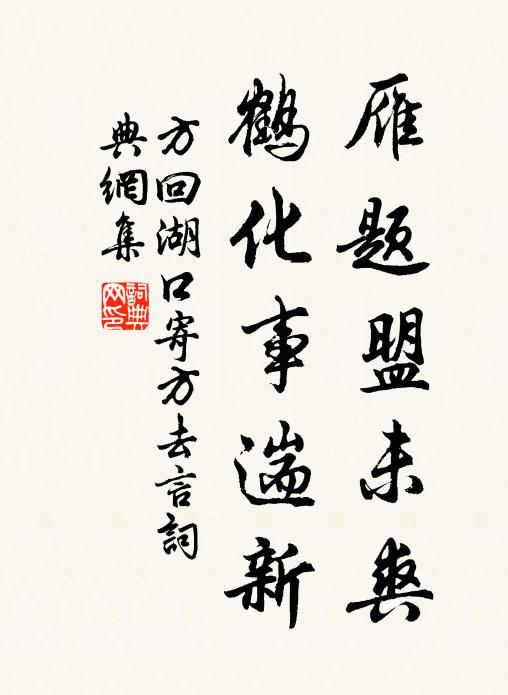 雁题盟未爽
鹤化事遄新
方回湖口寄方去言詞
典網集
詞典网印